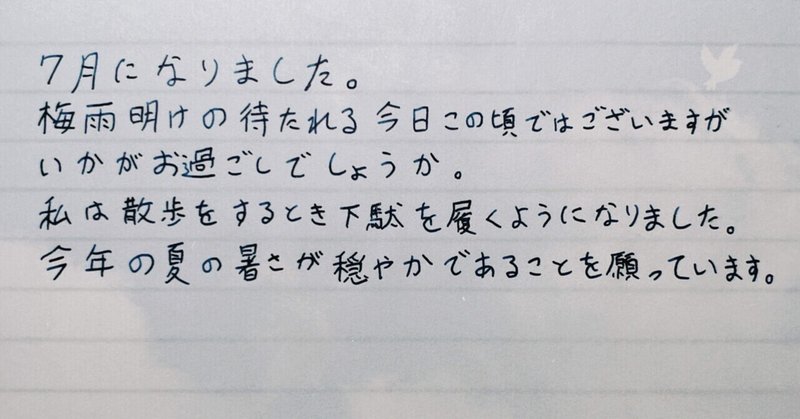 7月になりました。
梅雨明けの待たれる今日この頃ではございますが
いかがお過ごしでしょうか。
私は散歩をするとき下駄を履くようになりました。
今年の夏の暑さが穏やかであることを願っています。